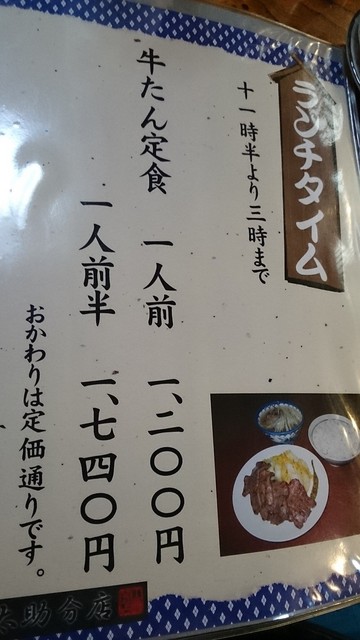 ランチタイム
十一時半より三時まで
牛たん定食 一人前 一、二〇〇円
一人前半 一、七四〇円
おかわりは定価通りです。
太助分店